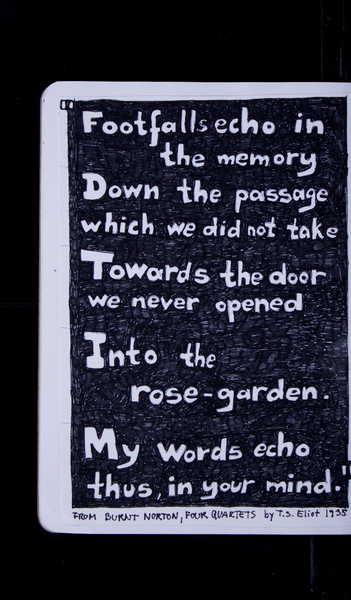 Footfalls echo in
the memory
Down the passage
which we did not take
Towards the door
we never opened
Into the
rose-garden.
My words echo
thus, in your mind."
FROM BURNT NORTON, FOUR QUARTETS by T.S. Eliot 1935